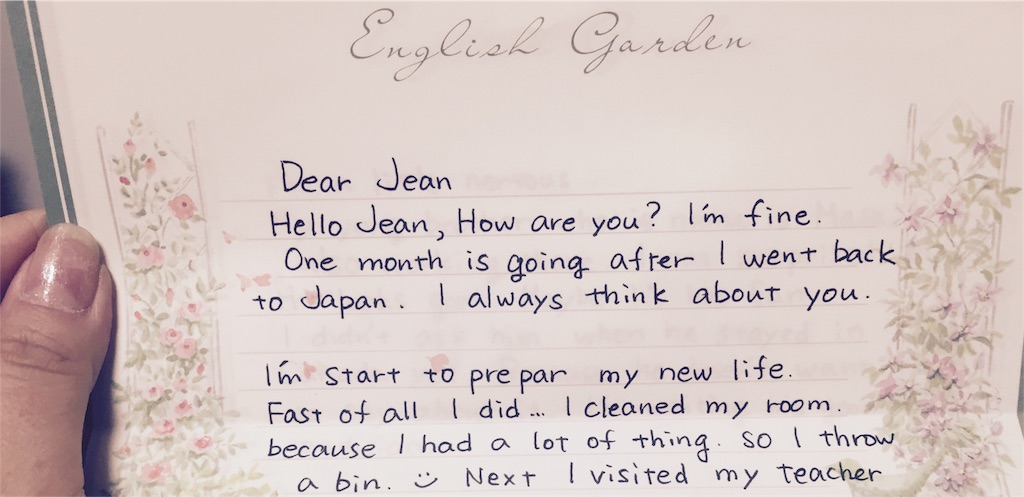 English Garden
Dear Jean
Hello Jean, How are you? I'm fine.
One month is going after I went back
to Japan. I always think about you.
I'm start to prepar my new life.
Fast of all I did... I cleaned my room.
because I had a lot of thing. so I throw
a bin. :) Next I visited my teacher